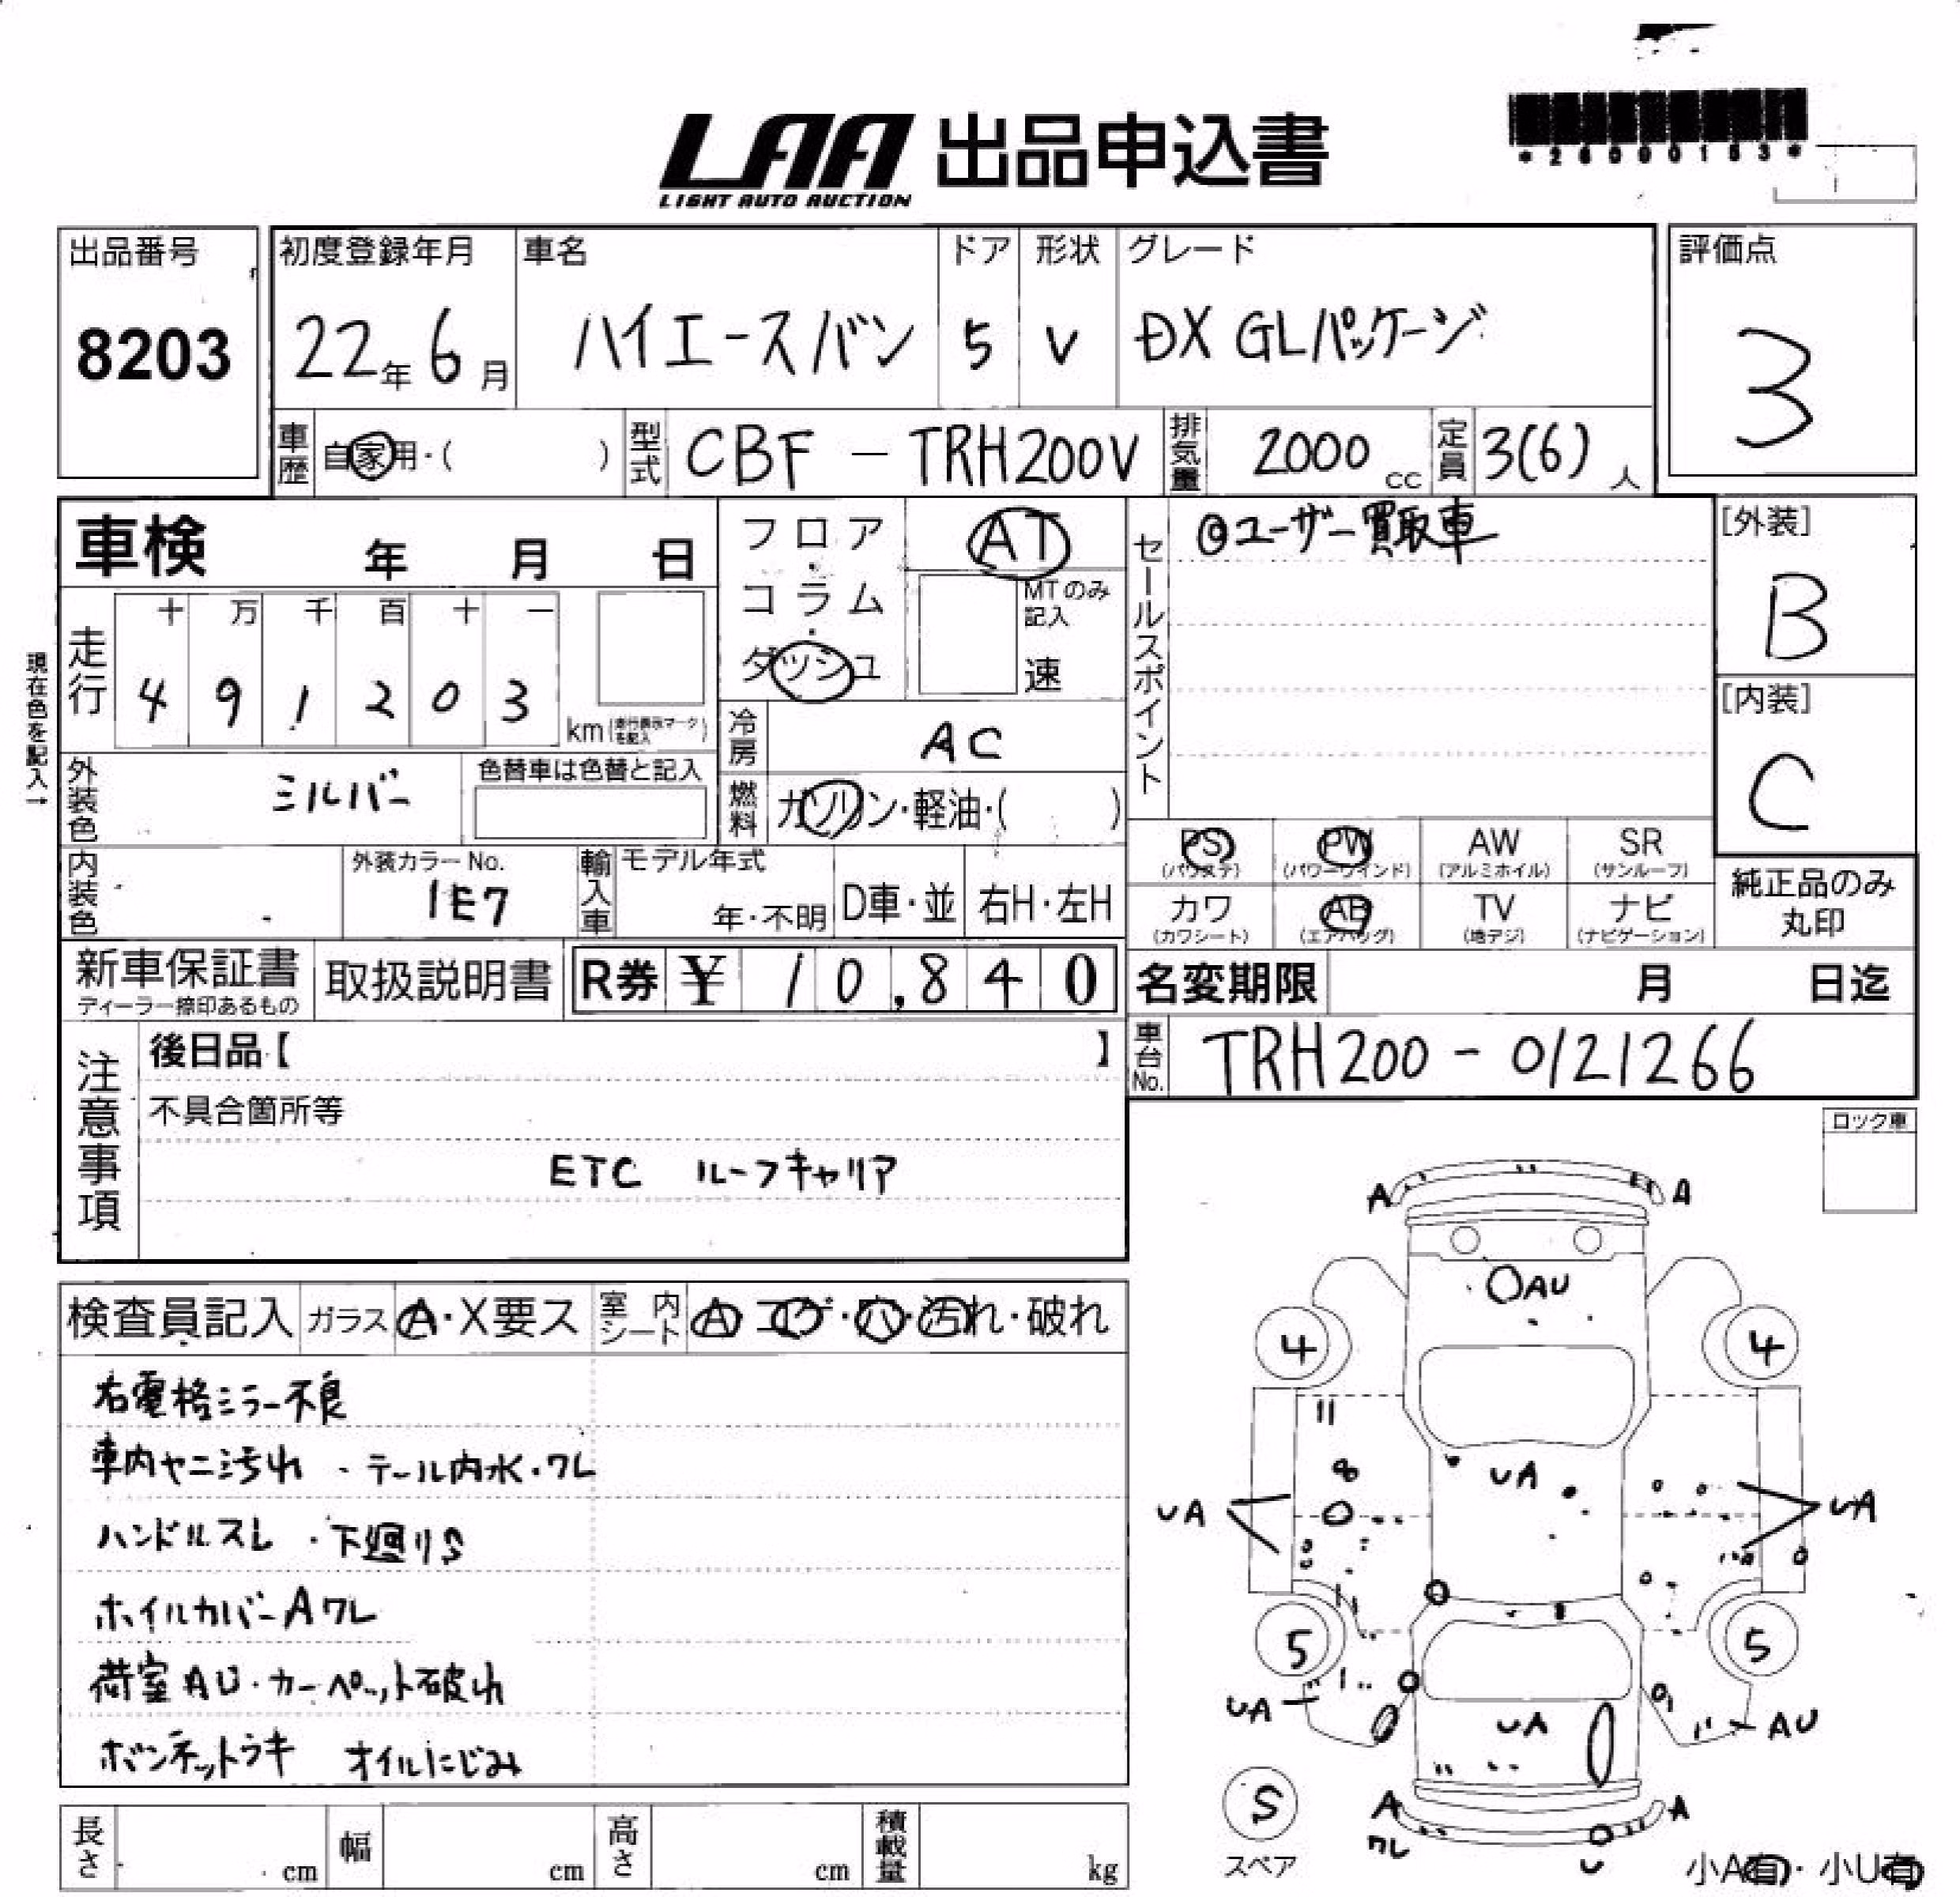 LAA 出品申込書
LIGHT AUTO AUCTION
*26000153*
出品番号
8203
初度登録年月
22年 6月
車名
ハイエースバン
ドア
5
形状
V
グレード
DX GLパッケージ
評価点
3
車歴
自家用・( )
型式
CBF - TRH200V
排気量
2000 cc
定員
3(6) 人
車検 年 月 日
現在色を記入→
走行
十 万 千 百 十 一
4 9 1 2 0 3
km(走行表示マークを記入)
フロア・コラム・ダッシュ
AT
MTのみ記入
速
冷房
AC
燃料
ガソリン・軽油・( )
セールスポイント
◎ユーザー買取車
[外装]
B
[内装]
C
外装色
シルバー
色替車は色替と記入
内装色
外装カラーNo.
1E7
輸入車
モデル年式
年・不明
D車・並
右H・左H
PS
(パワステ)
PW
(パワーウインド)
AW
(アルミホイル)
SR
(サンルーフ)
カワ
(カワシート)
AB
(エアバッグ)
TV
(地デジ)
ナビ
(ナビゲーション)
純正品のみ
丸印
新車保証書
ディーラー捺印あるもの
取扱説明書
R券 ¥ 10,840
名変期限 月 日迄
車台No.
TRH200 - 0121266
注意事項
後日品【 】
不具合箇所等
ETC ルーフキャリア
ロック車
検査員記入
ガラス
A・X要ス
室内シート
A コゲ・穴・汚れ・破れ
右電格ミラー不良
車内ヤニ汚れ ・テール内水・ワレ
ハンドルスレ ・下廻りS
ホイルカバーAワレ
荷室AU・カーペット破れ
ボンネットウキ オイルにじみ
A A
AU
4 4
UA
UA UA
5 5
UA UA AU
S
スペア
A A
ワレ U
小A有・小U有
長さ cm
幅 cm
高さ cm
積載量 kg